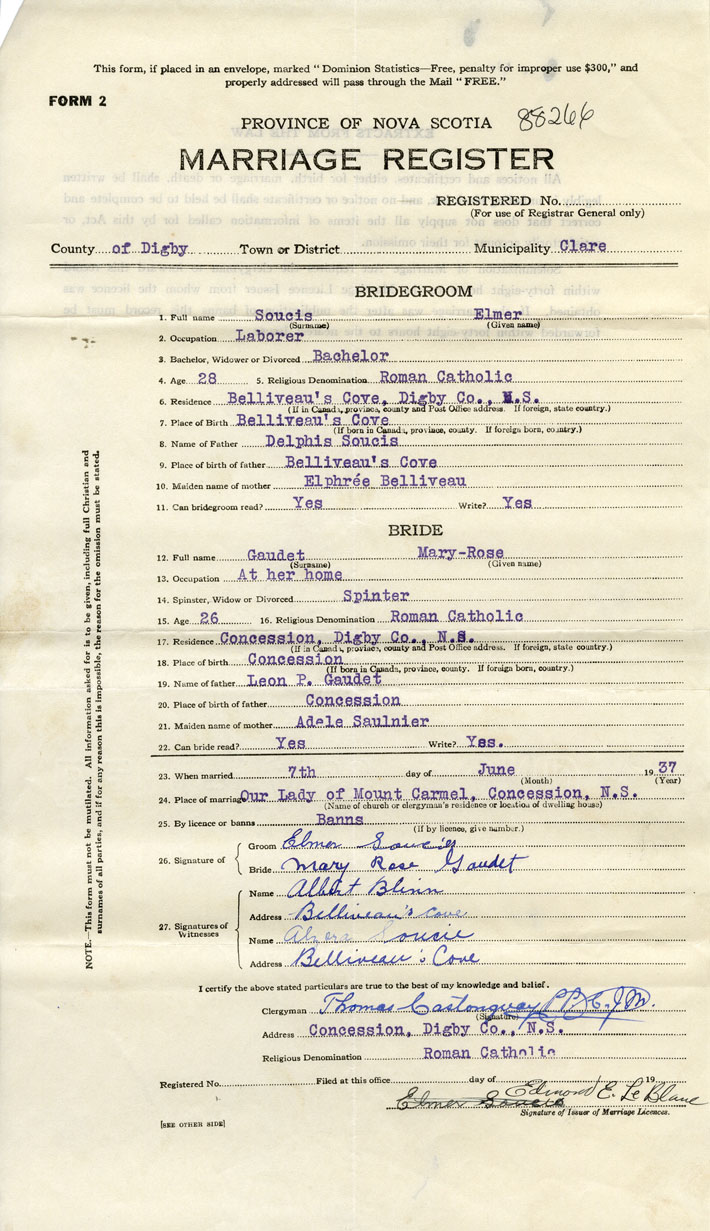 This form, if placed in an envelope, marked "Dominion Statistics—Free, penalty for improper use $300," and
properly addressed will pass through the Mail "FREE."
FORM 2
PROVINCE OF NOVA SCOTIA 88266
MARRIAGE REGISTER
REGISTERED No.
(For use of Registrar General only)
County of Digby Town or District Municipality Clare
BRIDEGROOM
1. Full name Soucis Elmer
(Surname) (Given name)
2. Occupation Laborer
3. Bachelor, Widower or Divorced Bachelor
4. Age 28 5. Religious Denomination Roman Catholic
6. Residence Belliveau's Cove, Digby Co., N.S.
(If in Canada, province, county and Post Office address. If foreign, state country.)
7. Place of Birth Belliveau's Cove
(If born in Canada, province, county. If foreign born, county.)
8. Name of Father Delphis Soucis
9. Place of birth of father Belliveau's Cove
10. Maiden name of mother Elphrée Belliveau
11. Can bridegroom read? Yes Write? Yes
BRIDE
12. Full name Gaudet Mary-Rose
(Surname) (Given name)
13. Occupation At her home
14. Spinster, Widow or Divorced Spinter
15. Age 26 16. Religious Denomination Roman Catholic
17. Residence Concession, Digby Co., N.S.
(If in Canada, province, county and Post Office address. If foreign, state country.)
18. Place of birth Concession
(If born in Canada, province, county. If foreign born, county.)
19. Name of father Leon P. Gaudet
20. Place of birth of father Concession
21. Maiden name of mother Adele Saulnier
22. Can bride read? Yes Write? Yes.
23. When married 7th day of June 1937
(Month) (Year)
24. Place of marriage Our Lady of Mount Carmel, Concession, N.S.
(Name of church or clergyman's residence or location of dwelling house)
25. By licence or banns Banns
(If by licence, give number.)
26. Signature of
Groom Elmer Soucis
Bride Mary Rose Gaudet
27. Signatures of Witnesses
Name Albert Blinn
Address Belliveau's Cove
Name Soucie
Address Belliveau's Cove
I certify the above stated particulars are true to the best of my knowledge and belief.
Clergyman Thomas Castonguay P.P.
(Signature)
Address Concession, Digby Co., N.S.
Religious Denomination Roman Catholic
Registered No. Filed at this office day of 19
Elmer Soucis Edmond E. Le Blanc
Signature of Issuer of Marriage Licences.
[SEE OTHER SIDE]
NOTE.—This form must not be mutilated. All information asked for is to be given, including full Christian and
surnames of all parties, and if for any reason this is impossible, the reason for the omission must be stated.